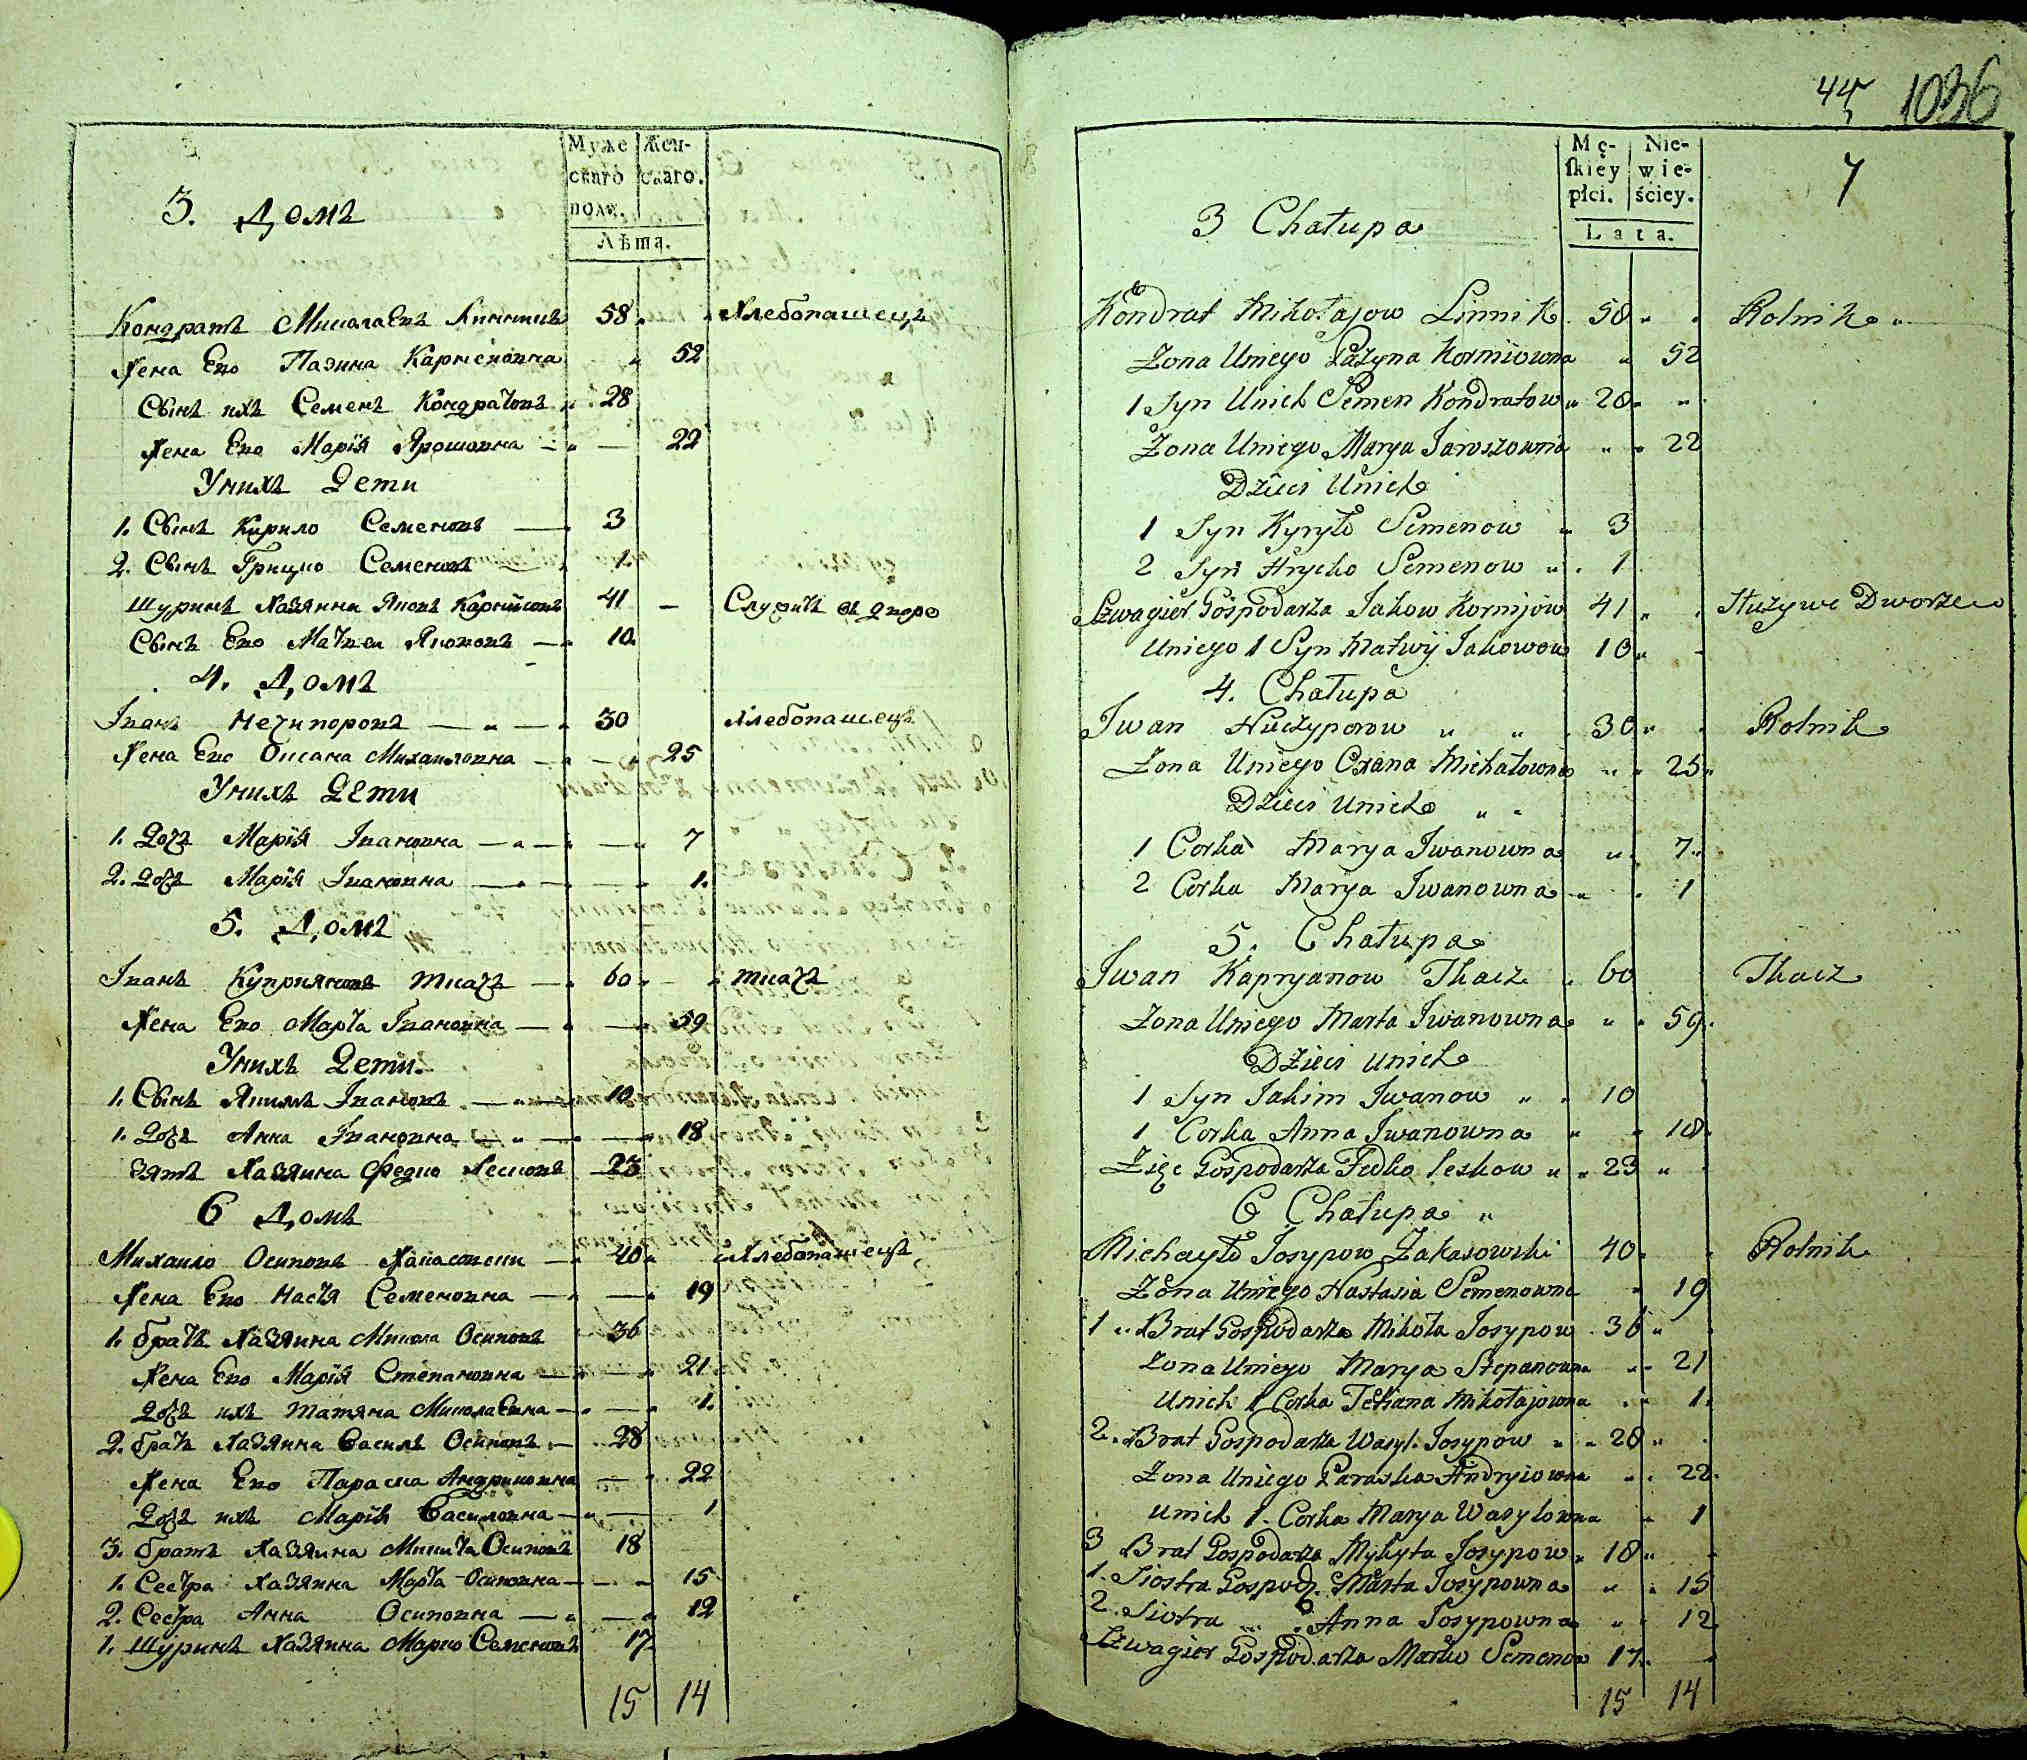 Муже скаго полу.
Жен- скаго.
Лѣта.
3. Домъ
Кондратъ Миколаевъ Линникъ 58 Хлебопашецъ
Жена Его Пазина Карнѣовна 52
Сынъ ихъ Семенъ Кондратовъ 28
Жена Его Марія Ярошовна 22
Унихъ Дети
1. Сынъ Кирило Семеновъ 3
2. Сынъ Грицко Семеновъ 1.
Шуринъ Хазяина Яковъ Карнійовъ 41 Служитъ въ дворе
Сынъ Его Матвеи Якововъ 10.
4. Домъ
Іванъ Нечипоровъ 30 Хлебопашецъ
Жена Его Оксана Михаиловна 25
Унихъ Дети
1. Дочь Марія Івановна 7
2. Дочь Марія Івановна 1.
5. Домъ
Іванъ Куприяновъ Ткачъ 60 Ткачъ
Жена Его Марта Івановна 59
Унихъ Дети.
1. Сынъ Якимъ Івановъ 10
1. Дочь Анна Івановна 18
Зять Хазяина Федко Лесковъ 23
6 Домъ
Михаило Осиповъ 40 Хлебопашецъ
Жена Его Настя Семеновна 19
1. Братъ Хазяина Микола Осиповъ 36
Жена Его Марія Степановна 21.
Дочь ихъ Татяна Миколаевна 1.
2. Братъ Хазяина Василь Осиповъ 28
Жена Его Параска Андриковна 22
Дочь ихъ Марія Василовна 1
3. Братъ Хазяина Микита Осиповъ 18
1. Сестра Хазяина Марта Осиповна 15
2. Сестра Анна Осиповна 12
1. Шуринъ Хазяина Марко Семеновъ 17
15 14
44 1036
Mę- skiey płci.
Nie- wie- ściey.
7
Lata.
3 Chałupa
Kondrat Mikołajow Linnik 58 Rolnik
Zona Uniego Pazyna Korniowna 52
1 Syn Unich Semen Kondratow 28
Zona Uniego Marya Jaroszowna 22
Dzieci Unich
1 Syn Kyryło Semenow 3
2 Syn Hrycko Semenow 1
Szwagier Gospodarza Jakow Kornijow 41 Służywe Dworze
Uniego 1 Syn Matwij Jakowow 10
4. Chałupa
Jwan Niczyporow 30 Rolnik
Zona Uniego Oxana Michałowna 25
Dzieci Unich
1 Corka Marya Jwanowna 7
2 Corka Marya Jwanowna 1
5. Chałupa
Jwan Kapryanow Tkacz 60 Tkacz
Zona Uniego Marta Jwanowna 59.
Dzieci unich
1 Syn Jakim Jwanow 10
1 Corka Anna Jwanowna 18
Zięc Gospodarza Fedko Leskow 23
6 Chałupa
Michayło Josypow Zakasowski 40 Rolnik
Zona Uniego Nastasia Semenowna 19
1 Brat Gospodarza Mikoła Josypow 36
Zona Uniego Marya Stepanowna 21
Unich 1 Corka Tetiana Mikołajowna 1.
2. Brat Gospodarza Wasyl. Josypow 28
Zona Uniego Paraska Andryiowna 22.
Unich 1. Corka Marya Wasylowna 1
3 Brat Gospodarza Mykyta Josypow 18
1. Siostra Gospod. Marta Josypowna 15
2. Siotra Anna Josypowna 12
Szwagier Gospodarza Marko Semenow 17.
15 14